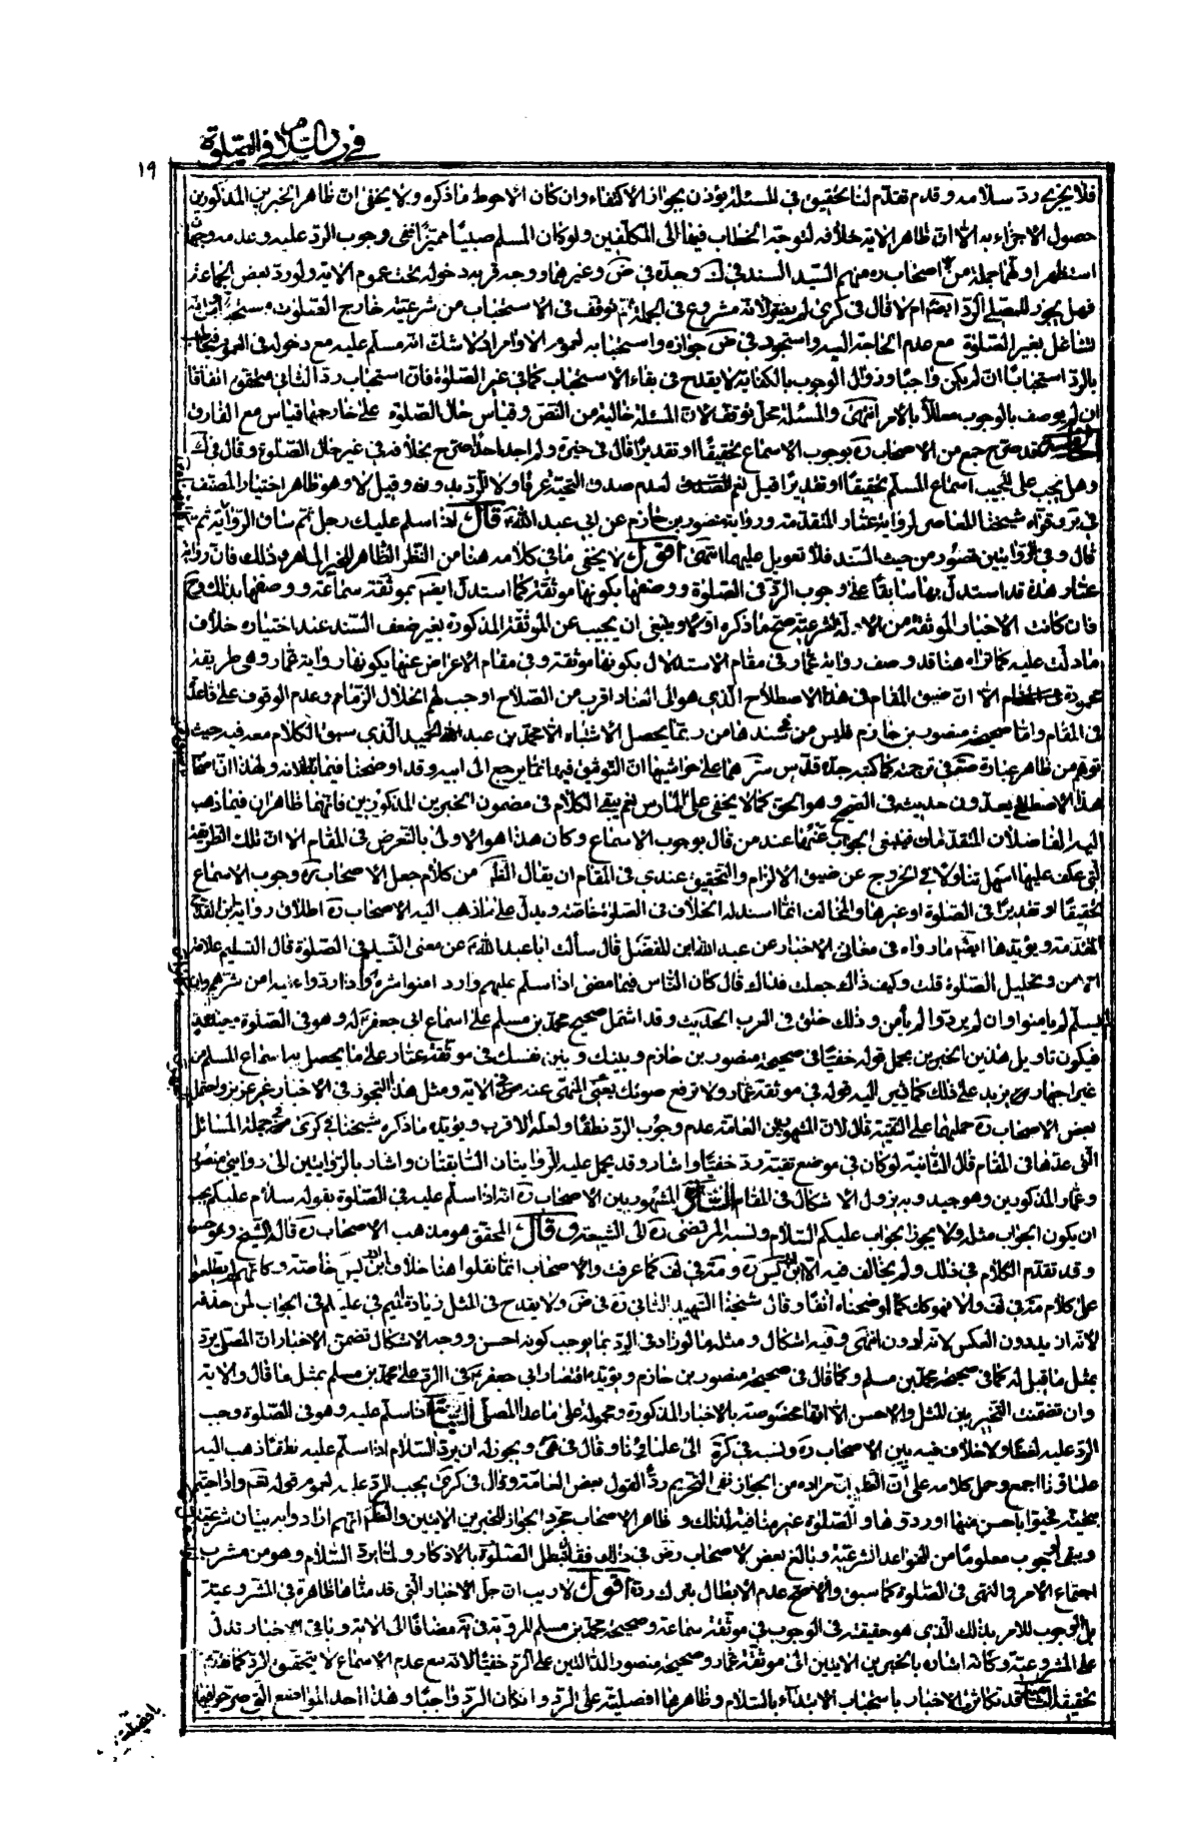 في رد السلام في الصلوة
١٩
فلا يجزي رد سلامه وقدم تقدم لنا تحقيق في المسئلة يؤذن بجواز الاكتفاء وان كان الاحوط ما ذكره ولا يخفى ان ظاهر الخبرين المذكورين
حصول الاجزاء به الا ان ظاهر الاية خلافه لتوجه الخطاب فيها الى المكلفين ولو كان المسلم صبيا مميزا ففي وجوب الرد عليه وعدمه وجهان
استظهر اولهما جملة من اصحابنا ره منهم السيد السند في ك وجده في ض وغيرهما ووجه قربه دخوله تحت عموم الاية ولو رد بعض الجماعة
فهل يجوز للمصلي الرد ايضا ام لا قال في كرى لم يضر لانه مشروع في الجملة ثم توقف في الاستحباب من شرعيته خارج الصلوة مستحبا ومن انه
تشاغل بغير الصلوة مع عدم الحاجة اليه واستجود في ض جوازه واستحبابه لعموم الاوامر اذ لا شك انه مسلم عليه مع دخوله في العموم
بالرد استحبابا ان لم يكن واجبا وزوال الوجوب بالكفاية لا يقدح في بقاء الاستحباب كما في غير الصلوة فان استحباب رد الثاني متحقق اتفاقا
ان لم يوصف بالوجوب معللا بالامر انتهى والمسئلة محل توقف لان المسئلة خالية من النص وقياس حال الصلوة على خارجها قياس مع الفارق
قد صرح جمع من الاصحاب ره بوجوب الاسماع تحقيقا او تقديرا قال في خيرة ولم اجد احدا صرح بخلافه في غير حال الصلوة وقال في ك
وهل يجب على المجيب اسماع المسلم تحقيقا او تقديرا قيل نعم لعدم صدق التحية عرفا ولا الرد بدونه وقيل لا وهو ظاهر اختيار المصنف
في بر وقواه شيخنا المعاصر لرواية عمار المتقدمة ورواية منصور بن حازم عن ابي عبد الله ع قال اذا سلم عليك رجل ثم ساق الرواية ثم
قال وفي الروايتين قصور من حيث السند فلا تعويل عليهما انتهى اقول لا يخفى ما في كلامه هنا من النظر الظاهر للخبير الماهر وذلك فان رواية
عمار هذه قد استدل بها سابقا على وجوب الرد في الصلوة ووصفها بكونها موثقة كما استدل ايضا بموثقة سماعة ووصفها بذلك وح
فان كانت الاخبار الموثقة من الادلة الشرعية صح ما ذكره اولا وينبغي ان يجيب عن الموثقة المذكورة بغير ضعف السند عند اختياره خلاف
ما دلت عليه كما تراه هنا قد وصف رواية عمار في مقام الاستدلال بكونها موثقة وفي مقام الاعراض عنها بكونها رواية عمار وهي طريقة
الا ان ضيق المقام في هذا الاصطلاح الذي هو الى الفساد اقرب من الصلاح اوجب لهم انحلال الزمام وعدم الوقوف على قاعدة
في المقام واما صحيحة منصور بن حازم فليس من في سندها من ربما يحصل الاشتباه الا محمد بن عبد الحميد الذي سبق الكلام معه فيه حيث
توهم من ظاهر عبارة صه في ترجمته كما كتبه جده قدس سرهما على حواشيها ان التوثيق فيها انما يرجع الى ابيه وقد اوضحنا فيما بطلانه ولهذا ان اصحاب
هذا الاصطلاح يعدون حديثه في الصحيح وهو الحق كما لا يخفى على الممارس نعم يبقى الكلام في مضمون الخبرين المذكورين فانهما ظاهران فيما ذهب
اليه الفاضلان المتقدمان فينبغي الجواب عنهما عند من قال بوجوب الاسماع وكان هذا هو الاولى بالتعرض في المقام الا ان تلك الطريقة
التي عكف عليها اسهل تناولا في الخروج عن ضيق الالزام والتحقيق عندي في المقام ان يقال الظاهر من كلام جعل الاصحاب ره وجوب الاسماع
تحقيقا او تقديرا في الصلوة او غيرها والمخالف انما اسند له الخلاف في الصلوة خاصة ويدل على ما ذهب اليه الاصحاب ره اطلاق رواية ابن القداح
المتقدمة ويؤيدها ايضا ما رواه في معاني الاخبار عن عبد الله ابن الفضل قال سألت ابا عبد الله ع عن معنى التسليم في الصلوة قال التسليم علامة
الامن وتحليل الصلوة قلت وكيف ذاك جعلت فداك قال كان الناس فيما مضى اذا سلم عليهم وارد امنوا شره وكانوا اذا ردوا عليه امن شرهم وان
لم يسلم لم يامنوه وان لم يردوا لم يأمن وذلك خلق في العرب الحديث وقد اشتمل صحيح محمد بن مسلم على اسماع ابي جعفر ع له وهو في الصلوة
فيكون تاويل هذين الخبرين بحمل قوله خفيا في صحيحة منصور بن حازم وبينك وبين نفسك في موثقة عمار على ما يحصل به اسماع المسلم من
غير اجهار يزيد على ذلك كما يشير اليه قوله في موثقة عمار ولا ترفع صوتك يعني المنهى عنه في الاية ومثل هذا التجوز في الاخبار غير عزيز واحتمل
بعض الاصحاب ره حملهما على التقية قال لان المشهور بين العامة عدم وجوب الرد نطقا ولعله الاقرب ويؤيده ما ذكره شيخنا في كرى من جملة المسائل
التي عدها في المقام قال الثانية لو كان في موضع تقية رد خفيا واشار وقد يحمل عليه الروايتان السابقتان واشار بالروايتين الى روايتي منصور
وعمار المذكورين وهو جيد وبه يزول الاشكال في المقام المشهور بين الاصحاب ره انه اذا سلم عليه في الصلوة بقوله سلام عليكم يجب
ان يكون الجواب مثله ولا يجوز الجواب عليكم السلام ونسبه المرتضى ره الى الشيعة وقال المحقق هو مذهب الاصحاب ره قاله الشيخ وهو حسن
وقد تقدم الكلام في ذلك ولم يخالف فيه الا ابن ادريس ره ومنه في لف كما عرفت والاصحاب انما نقلوا هنا خلاف ابن ادريس خاصة وكانهم لم يطلعوا
على كلام منه في لف والا فهو كك كما اوضحناه انفا وقال شيخنا الشهيد الثاني ره في ض ولا يقدح في المثل زيادة الميم في عليكم في الجواب لمن حذفه
لانه ازيد دون العكس لانه ادون انتهى وفيه اشكال ومثله ما لو زاد في الرد بما يوجب كونه احسن ووجه الاشكال تضمن الاخبار ان المصلي يرد
بمثل ما قيل له كما في صحيحة محمد بن مسلم وكما قال في صحيحة منصور بن حازم ويؤيده اقتصار ابي جعفر ع في الرد على محمد بن مسلم بمثل ما قال والاية
وان تضمنت التخيير بين المثل والاحسن الا انها مخصوصة بالاخبار المذكورة ومحمولة على ما عدا المصلي اذا سلم عليه وهو في الصلوة وجب
الرد عليه لفظا ولا خلاف فيه بين الاصحاب ره ونسبه في كرة الى علمائنا وقال في هى ويجوز له ان يرد السلام اذا سلم عليه نطقا ذهب اليه
علماؤنا اجمع وحمل كلامه على ان الظاهر ان مراده من الجواز نفي التحريم ردا لقول بعض العامة وقال في كرى يجب الرد عليه لعموم قوله تعم واذا حييتم
بتحية فحيوا باحسن منها او ردوها والصلوة غير منافية لذلك وظاهر الاصحاب مجرد الجواز للخبرين الاتيين والظاهر انهم ارادوا به بيان شرعيته
ويبقى الوجوب معلوما من القواعد الشرعية وبالغ بعض الاصحاب رض في ذلك فقال تبطل الصلوة بالاذكار ولما يرد السلام وهو من مشرب
اجتماع الامر والنهى في الصلوة كما سبق والاصح عدم الابطال بترك رده اقول لا ريب ان جل الاخبار التي قدمناها ظاهرة في المشروعية
بل الوجوب للامر بذلك الذي هو حقيقة في الوجوب في موثقة سماعة وصحيحة محمد بن مسلم المروية في يه مضافا الى الاية وباقي الاخبار تدل
على المشروعية وكانه اشار بالخبرين الاتيين الى موثقة عمار وصحيحة منصور الدالتين على الرد خفيا لانه مع عدم الاسماع لا يتحقق الرد كما تقدم
تحقيقه قد تكاثرت الاخبار باستحباب الابتداء بالسلام وظاهرها افضليته على الرد وان كان الرد واجبا وهذا احد المواضع التي صرحوا فيها
بافضلية